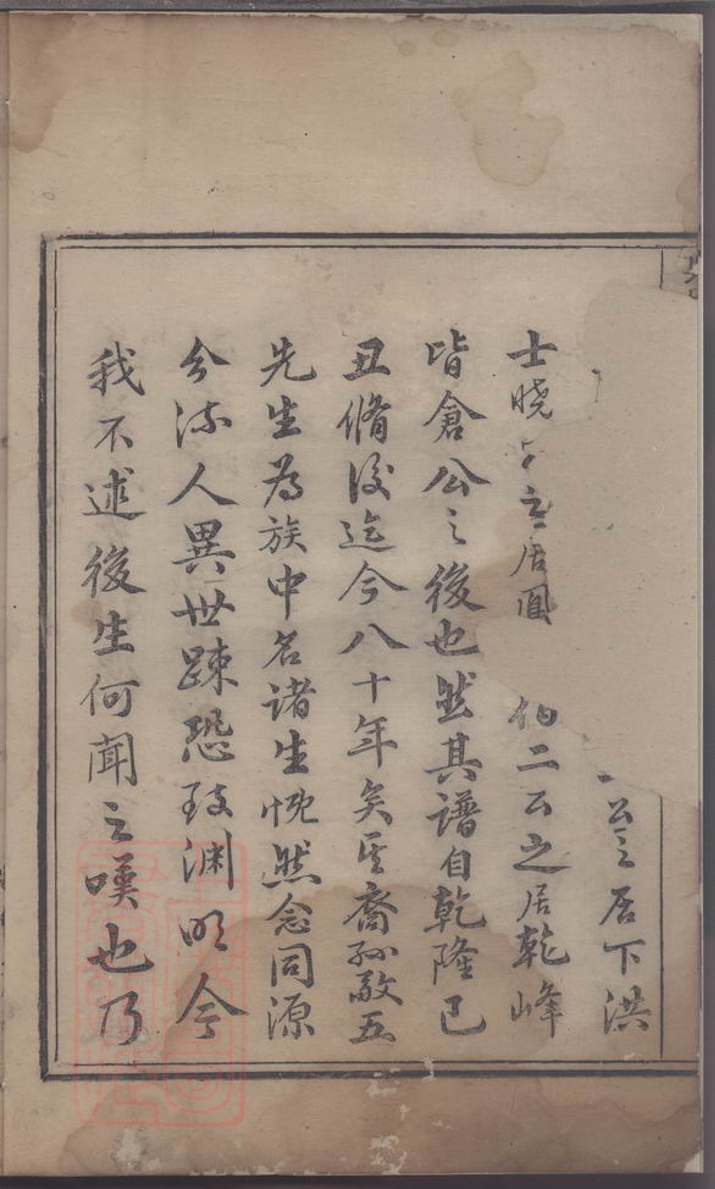 公之居下洪
士曉 之居 伯二公之居乾峰
皆倉公之後也然其譜自乾隆己
丑脩後迄今八十年矣其裔孫敬五
先生為族中名諸生慨然念同源
分流人異世踈恐致淵明今
我不述後生何聞之嘆也乃